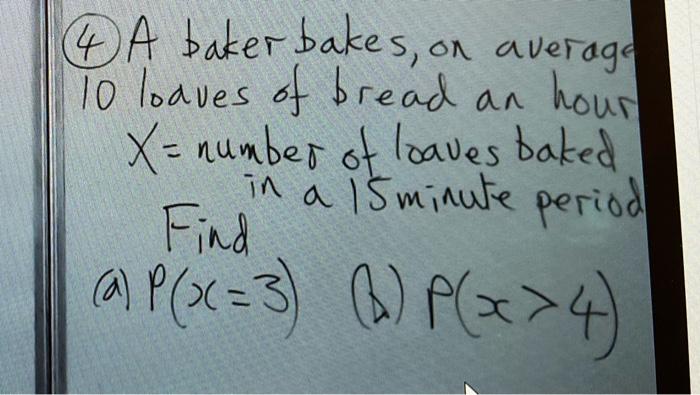 ④ A baker bakes, on average
10 loaves of bread an hour
X = number of loaves baked
in a 15 minute period
Find
(a) P(x=3) (b) P(x>4)